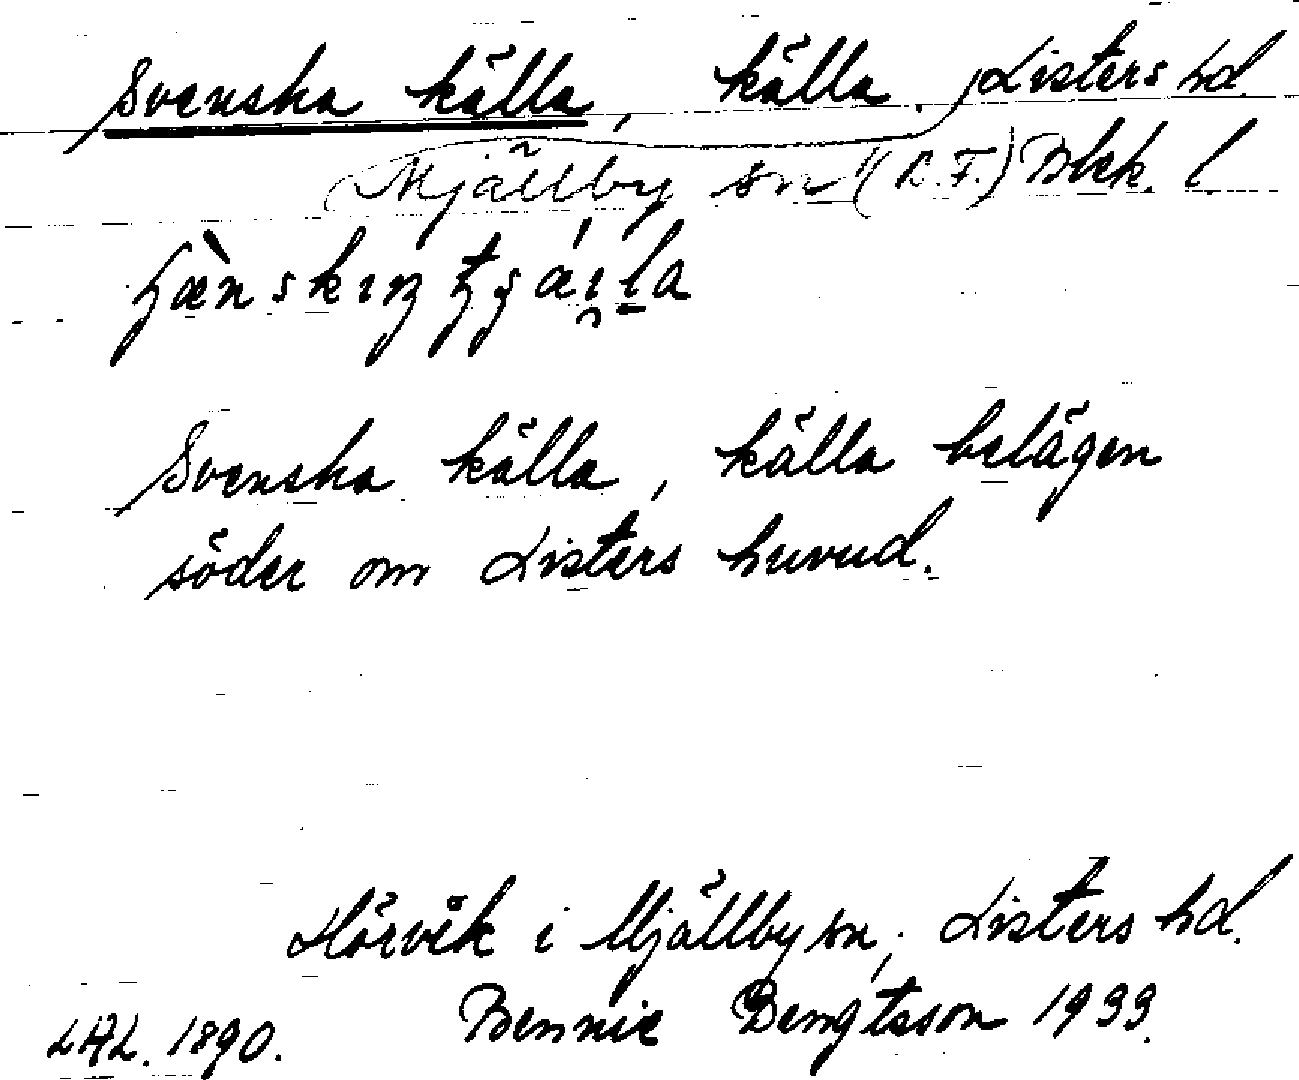 Svenska källa, källa. Listers hd
Mjällby sn (R.F.) Blek. l
Svenska källa, källa belägen
söder om Listers huvud.
Hörvik i Mjällby sn, Listers hd.
LAL. 1890. Bennie Bengtsson 1933.